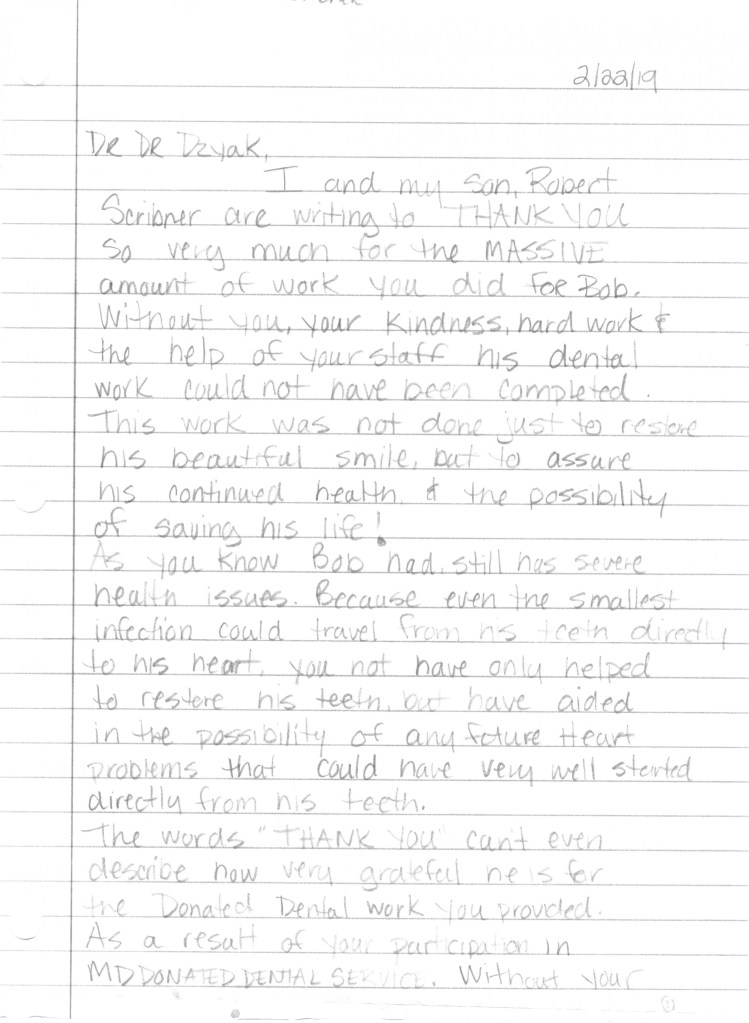 2/22/19
DR DR Dzyak,
I and my son, Robert
Scribner are writing to "THANK YOU
So very much for the MASSIVE
amount of work you did for Bob.
Without you, your kindness, hard work &
the help of your staff his dental
work could not have been completed.
This work was not done just to restore
his beautiful smile, but to assure
his continued health & the possibility
of saving his life!
As you know Bob had, still has severe
health issues. Because even the smallest
infection could travel from his teeth directly
to his heart, you not have only helped
to restore his teeth, but have aided
in the possibility of any future Heart
problems that could have very well started
directly from his teeth.
The words "THANK YOU" can't even
describe how very grateful he is for
the Donated Dental work you provided.
As a result of your participation in
MD DONATED DENTAL SERVICE. Without your
①